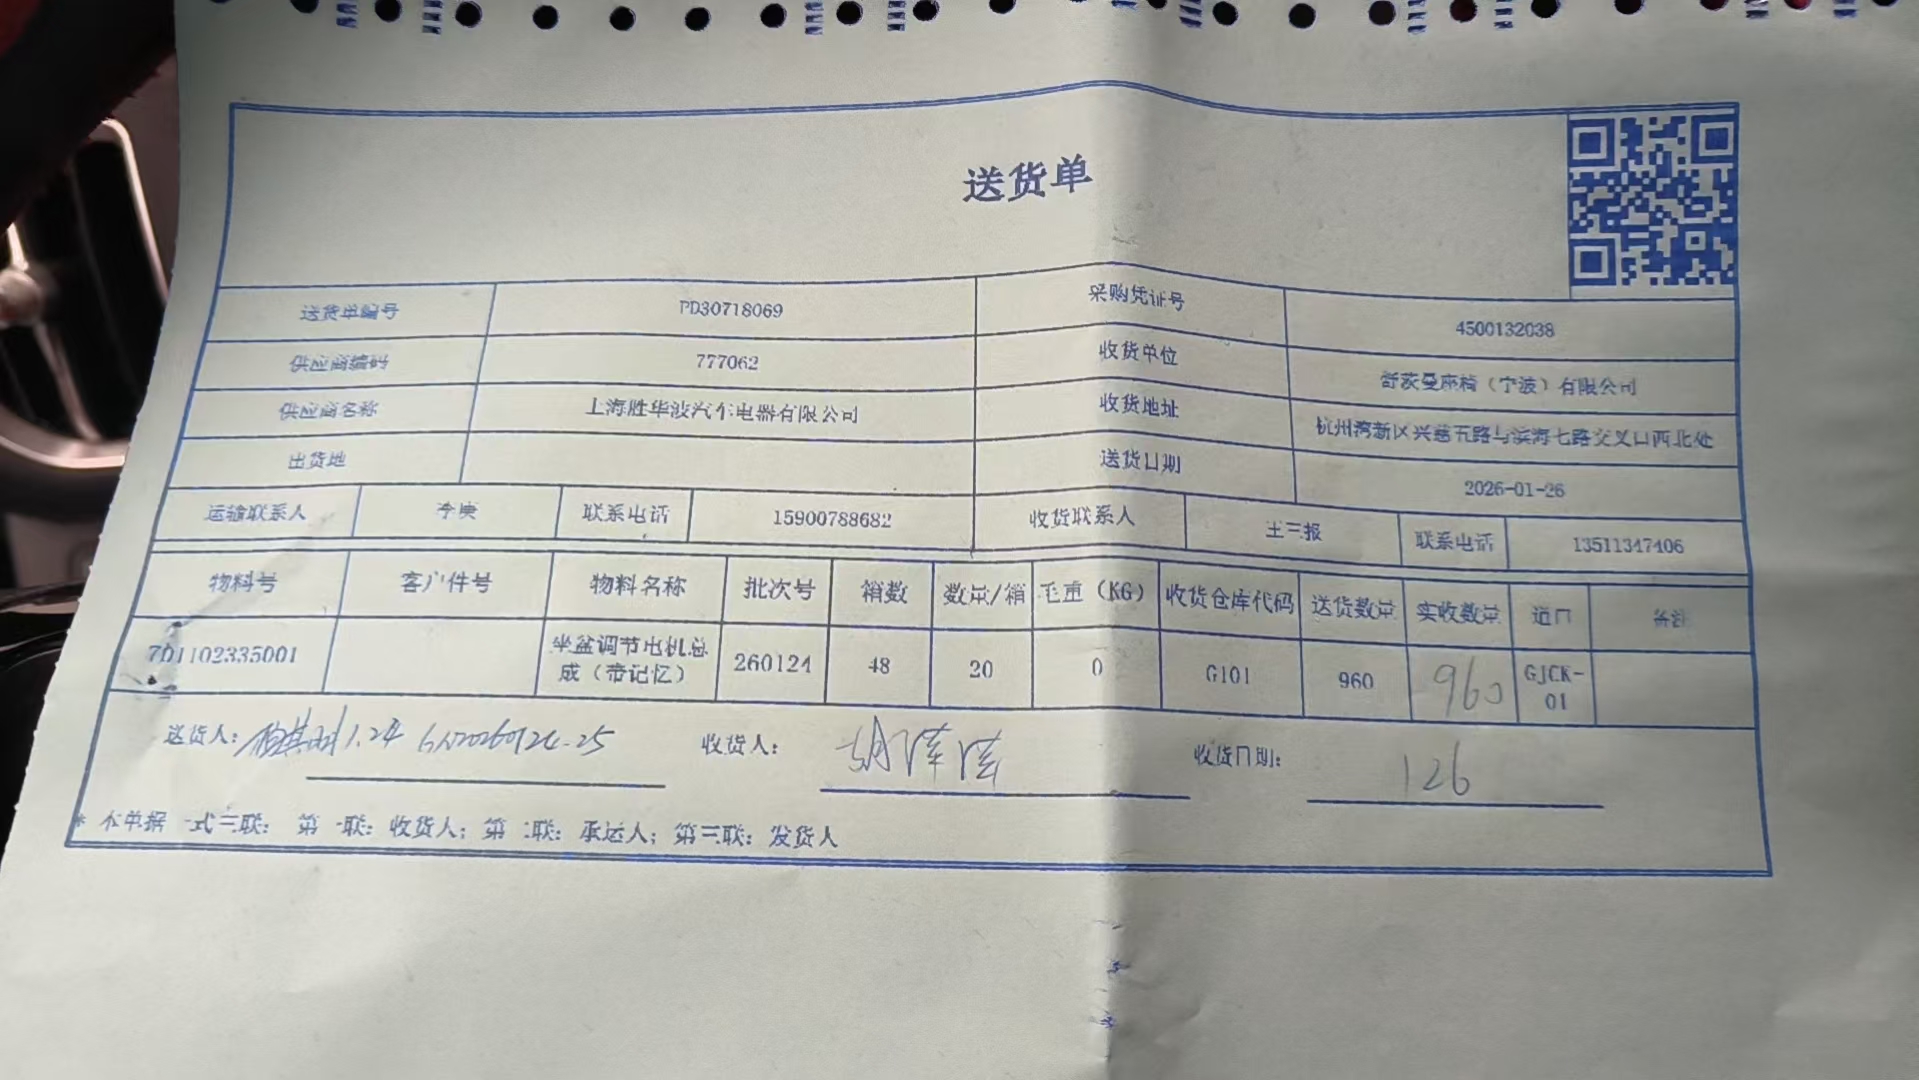 送货单
送货单编号 PD30718069 采购凭证号 4500132038
供应商编码 777062 收货单位 舒茨曼座椅（宁波）有限公司
供应商名称 上海胜华波汽车电器有限公司 收货地址 杭州湾新区兴慈五路与滨海七路交叉口西北处
出货地 送货日期 2026-01-26
运输联系人 冷庚 联系电话 15900788682 收货联系人 王三报 联系电话 13511347406
物料号 客户件号 物料名称 批次号 箱数 数量/箱 毛重（KG） 收货仓库代码 送货数量 实收数量 道口 备注
7D1102335001 坐盆调节电机总成（带记忆） 260124 48 20 0 G101 960 960 GJCK-01
送货人： 1.24 收货人： 收货日期： 126
* 本单据一式三联： 第一联：收货人；第二联：承运人；第三联：发货人